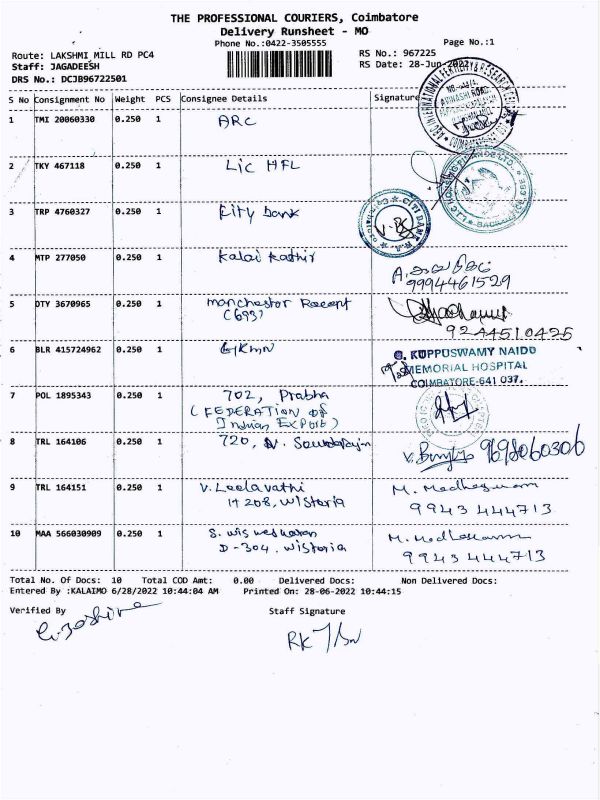 THE PROFESSIONAL COURIERS, Coimbatore
Delivery Runsheet - MO
Phone No.:0422-3505555
Page No.:1
Route: LAKSHMI MILL RD PC4
RS No.: 967225
Staff: JAGADEESH
RS Date: 28-Jun-2022
DRS No.: DCJB96722501
S No Consignment No Weight PCS Consignee Details Signature
1 TMI 20060330 0.250 1 ARC
2 TKY 467118 0.250 1 LIC HFL
3 TRP 4760327 0.250 1 City bank
4 MTP 277050 0.250 1 Kalai Kathir
9994461529
5 DTY 3670965 0.250 1 Manchestor Recent
(693)
9244510425
6 BLR 415724962 0.250 1 GKMN
G. KUPPUSWAMY NAIDU
MEMORIAL HOSPITAL
COIMBATORE-641 037.
7 POL 1895343 0.250 1 702, Prabha
(FEDERATION of
Indian Export)
8 TRL 164106 0.250 1 720, N. Soundarajn
9698060306
9 TRL 164151 0.250 1 V. Leelavathi
H 208, Wistoria
M.
9943 444713
10 MAA 566030909 0.250 1 S. Wisweskaran
D-304, Wistoria
M.
9943 444713
Total No. Of Docs: 10 Total COD Amt: 0.00 Delivered Docs: Non Delivered Docs:
Entered By :KALAIMO 6/28/2022 10:44:04 AM Printed On: 28-06-2022 10:44:15
Verified By
Staff Signature